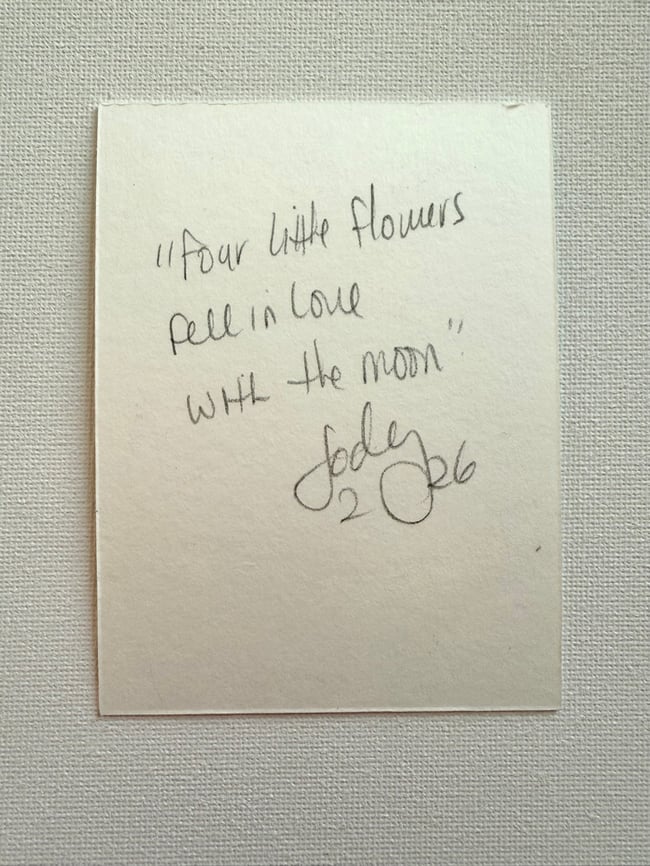 "Four little flowers
fell in love
with the moon"
Jody
2026